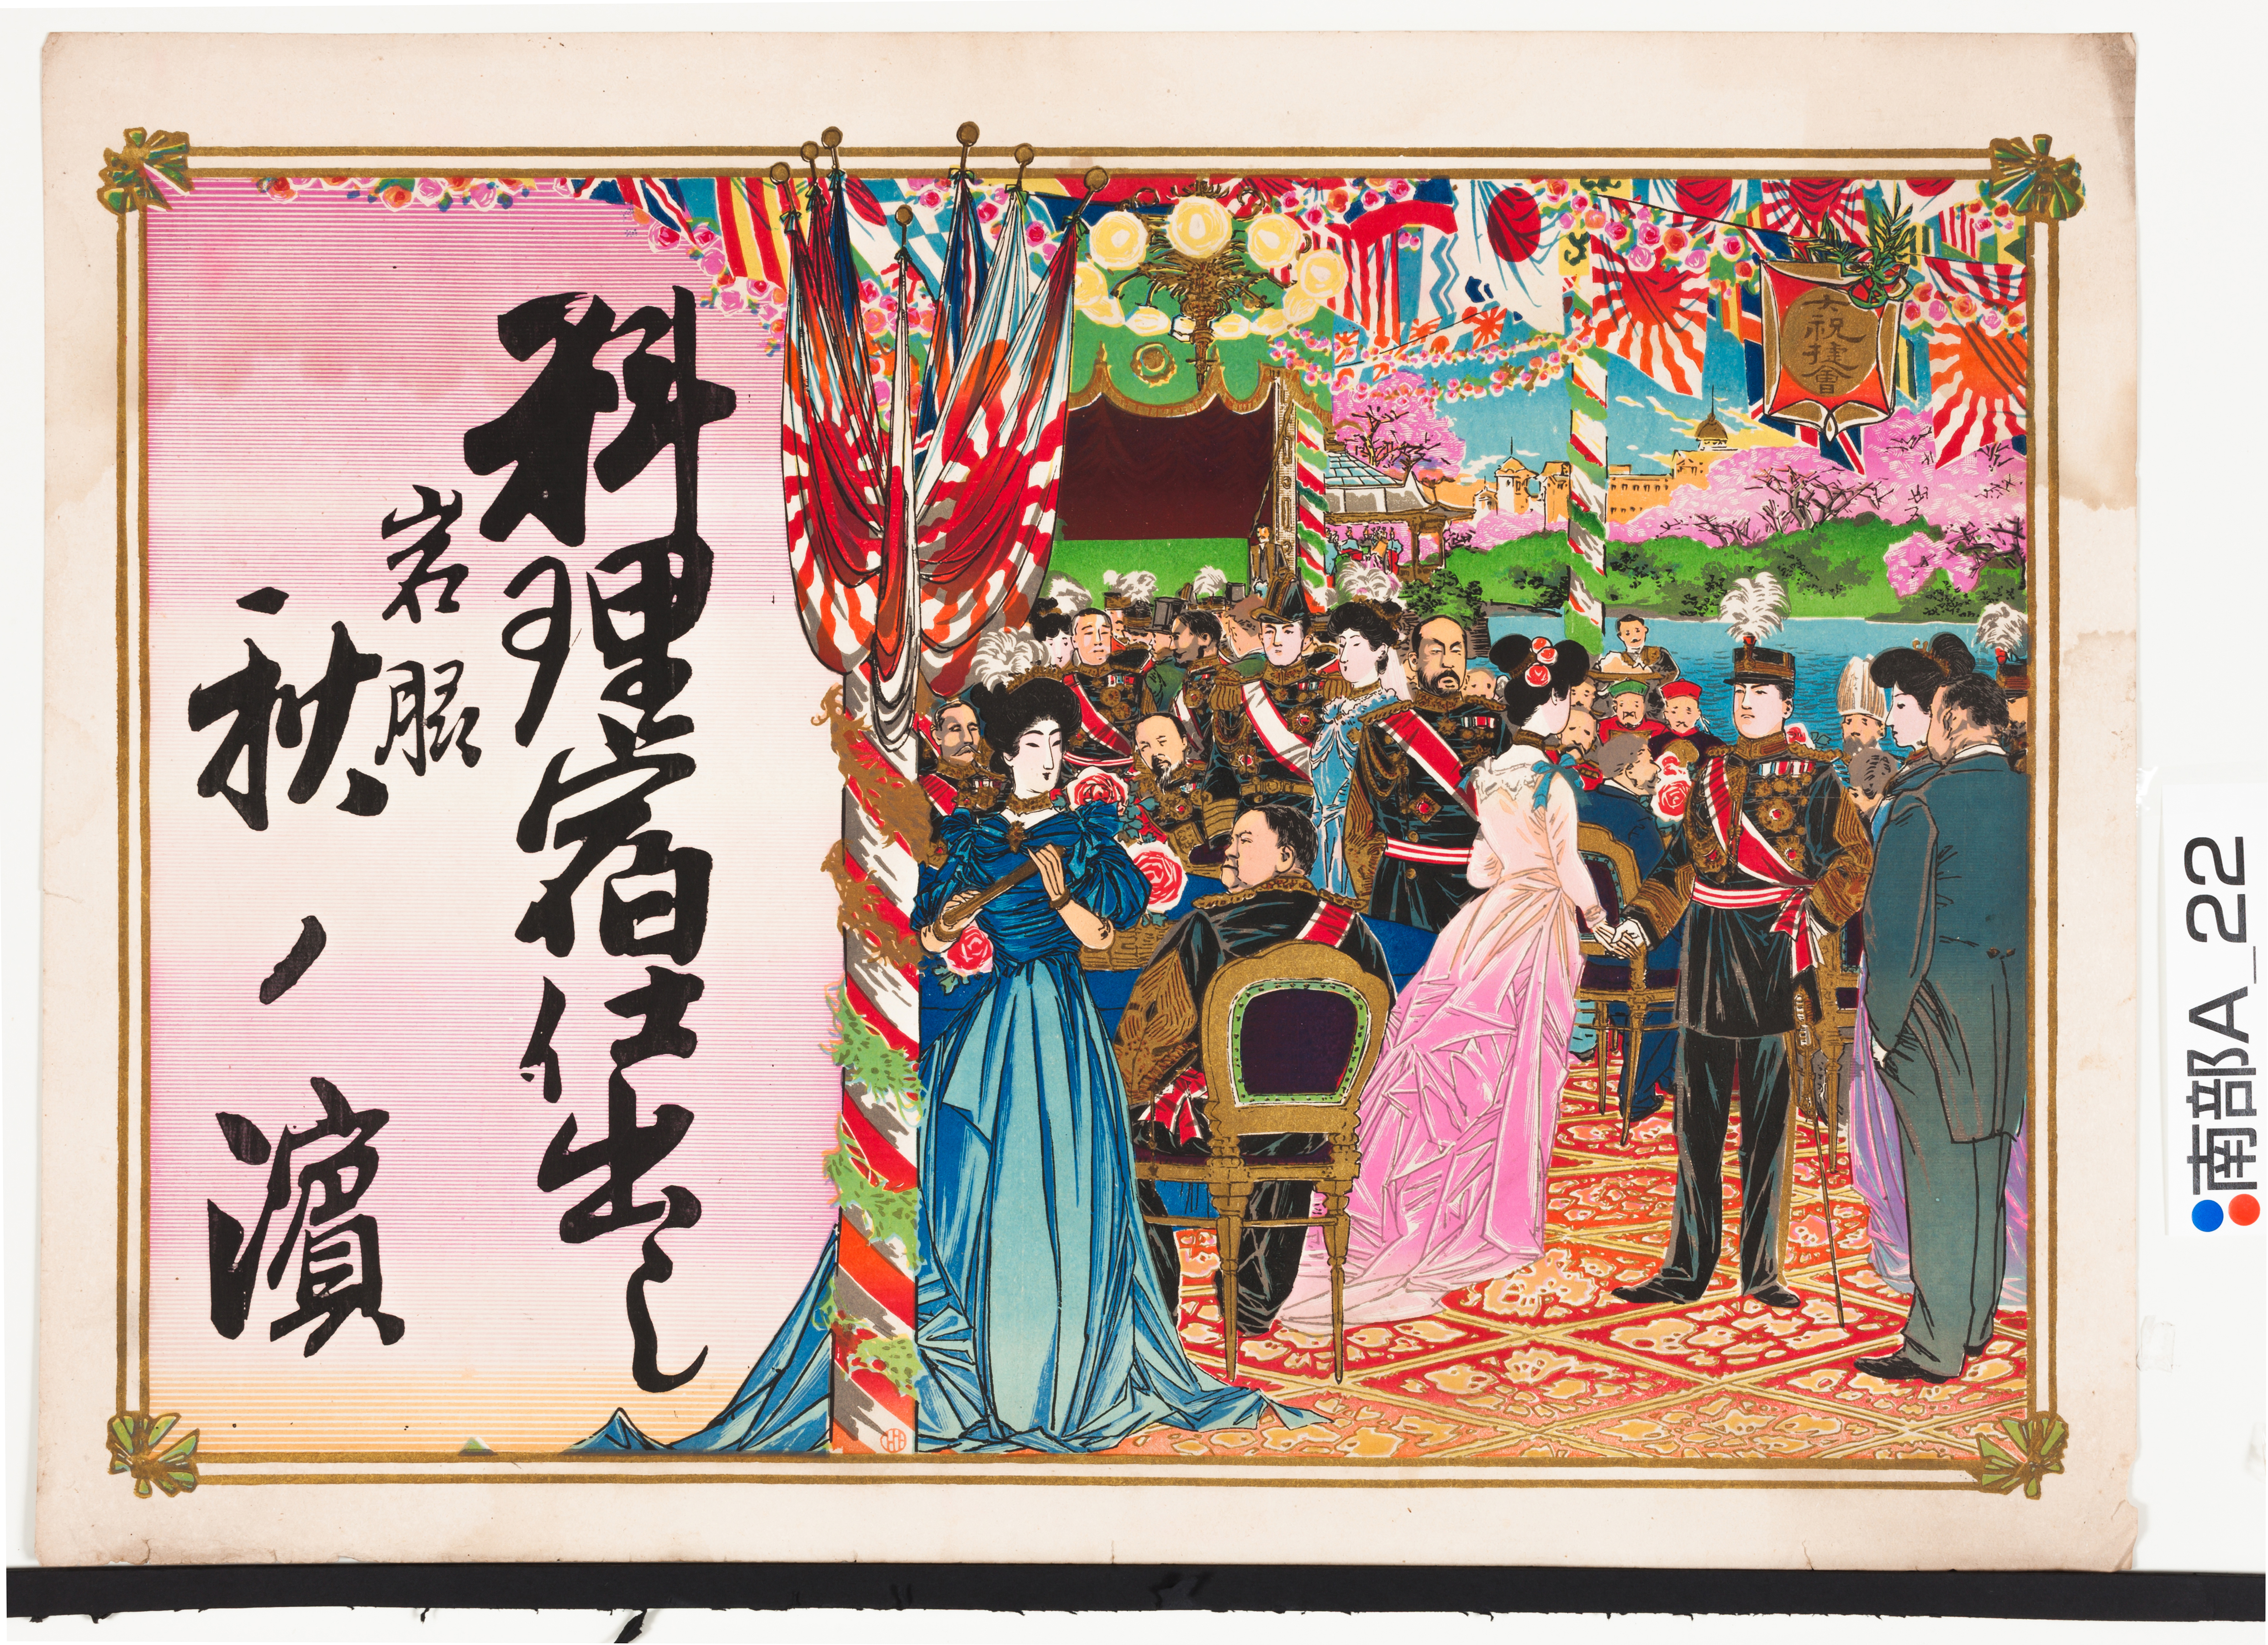 大祝捷會
料理宿仕出し
岩脇
秋ノ濱
南部A_22